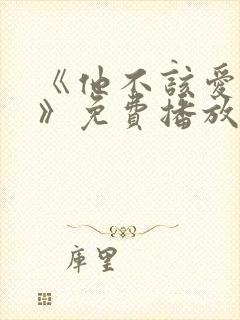 《他不該愛
》免費播放
庫里